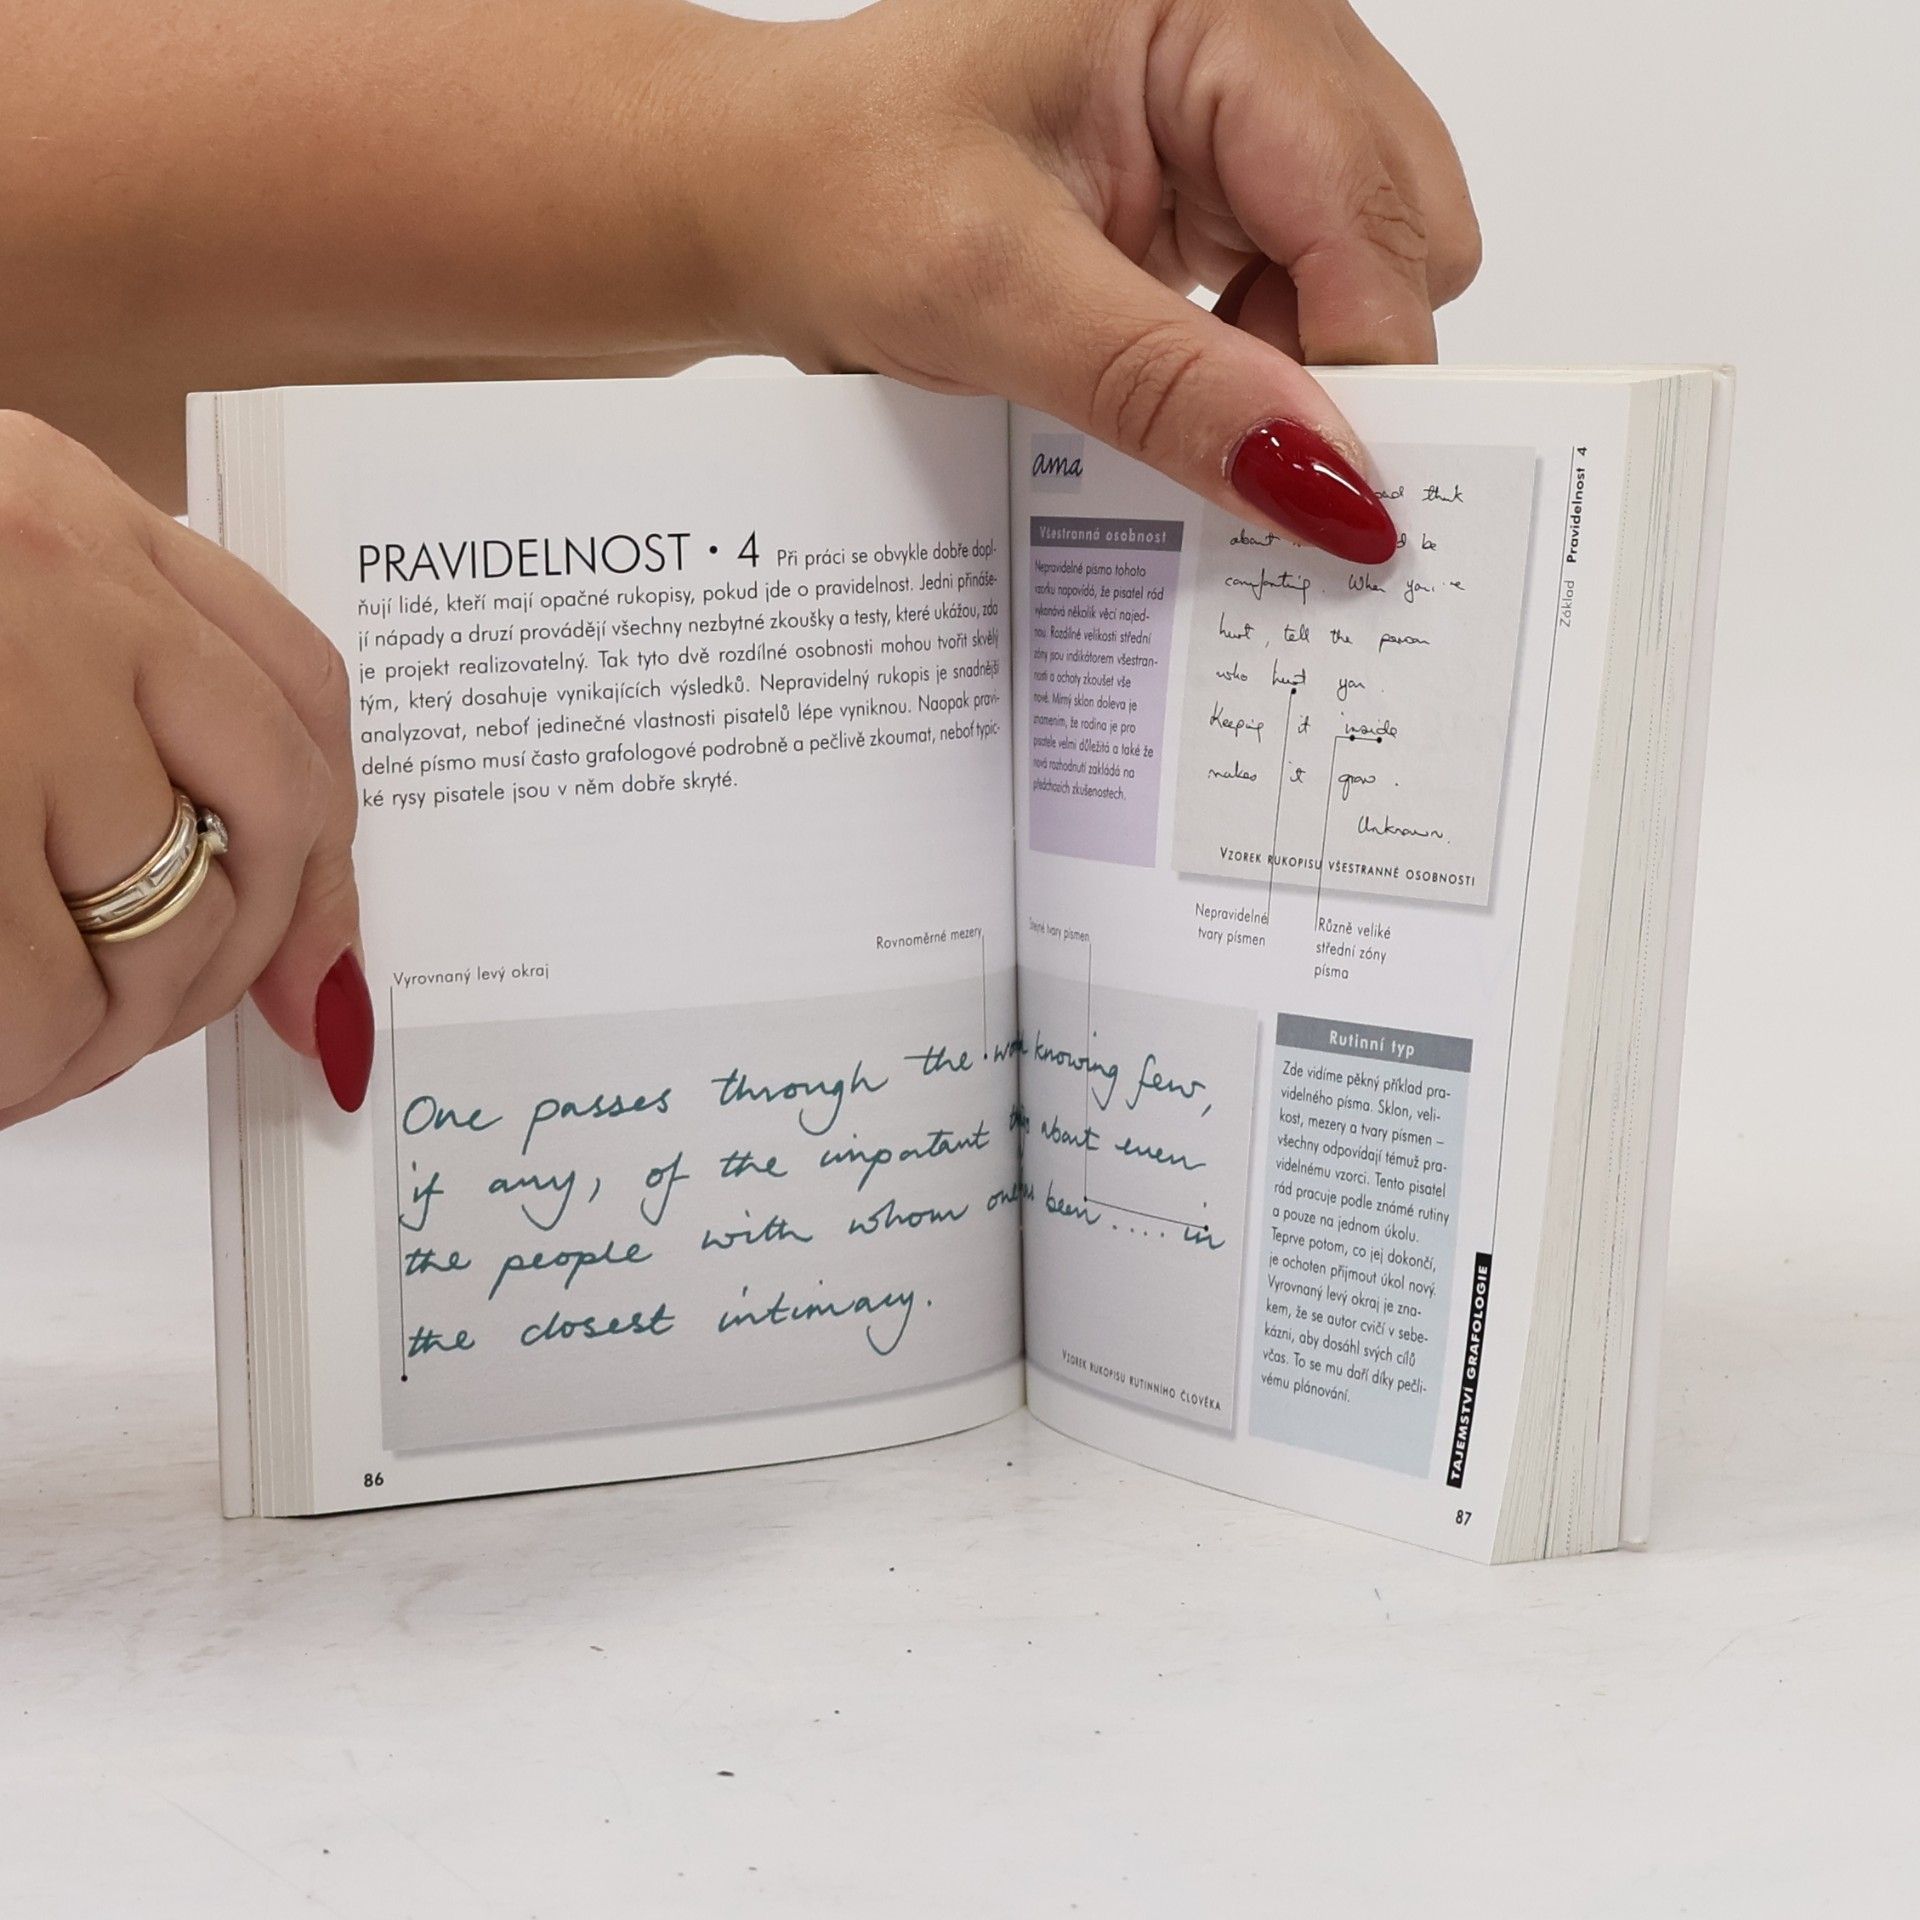 PRAVIDELNOST • 4 Při práci se obvykle dobře dopl-
ňují lidé, kteří mají opačné rukopisy, pokud jde o pravidelnost. Jedni přináše-
jí nápady a druzí provádějí všechny nezbytné zkoušky a testy, které ukážou, zda
je projekt realizovatelný. Tak tyto dvě rozdílné osobnosti mohou tvořit skvělý
tým, který dosahuje vynikajících výsledků. Nepravidelný rukopis je snadnější
analyzovat, neboť jedinečné vlastnosti pisatelů lépe vyniknou. Naopak pravi-
delné písmo musí často grafologové podrobně a pečlivě zkoumat, neboť typic-
ké rysy pisatele jsou v něm dobře skryté.
Rovnoměrné mezery
Vyrovnaný levý okraj
One passes through the knowing few,
if any, of the important about even
the people with whom been .... in
the closest intimacy.
VZOREK RUKOPISU RUTINNÍHO ČLOVĚKA
86
ama
Všestranná osobnost
Nepravidelné písmo tohoto
vzorku napovídá, že pisatel rád
vykonává několik věcí najed-
nou. Rozdílné velikosti střední
zóny jsou indikátorem všestran-
nosti a ochoty zkoušet vše
nové. Mírný sklon doleva je
znamením, že rodina je pro
pisatele velmi důležitá a také že
nová rozhodnutí zakládá na
předchozích zkušenostech.
think
about be
comforting. When you're
hurt, tell the person
who hurt you.
Keeping it inside
makes it grow.
Unknown.
VZOREK RUKOPISU VŠESTRANNÉ OSOBNOSTI
Nepravidelné
tvary písmen
Různě veliké
střední zóny
písma
Stejné tvary písmen
Rutinní typ
Zde vidíme pěkný příklad pra-
videlného písma. Sklon, veli-
kost, mezery a tvary písmen –
všechny odpovídají témuž pra-
videlnému vzorci. Tento pisatel
rád pracuje podle známé rutiny
a pouze na jednom úkolu.
Teprve potom, co jej dokončí,
je ochoten přijmout úkol nový.
Vyrovnaný levý okraj je zna-
kem, že se autor cvičí v sebe-
kázni, aby dosáhl svých cílů
včas. To se mu daří díky pečli-
vému plánování.
Základ Pravidelnost 4
TAJEMSTVÍ GRAFOLOGIE
87